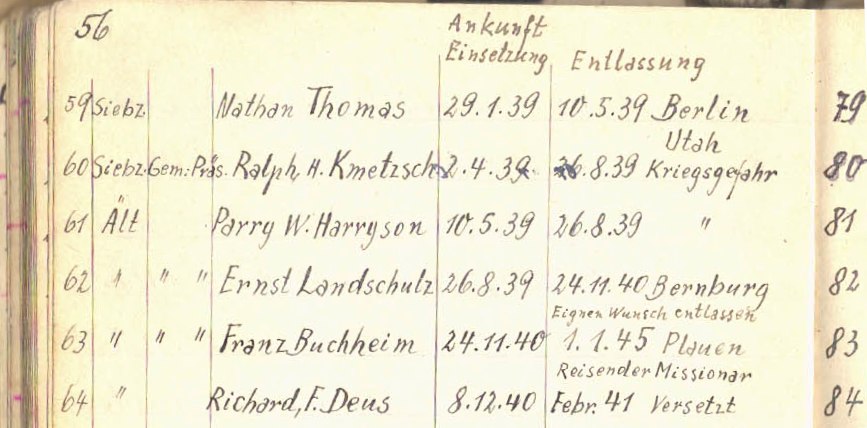 56
Ankunft
Einsetzung Entlassung
59 Siebz. Nathan Thomas 29.1.39 10.5.39 Berlin 79
Utah
60 Siebz. Gem: Präs. Ralph, H. Kmetzsch 2.4.39 26.8.39 Kriegsgefahr 80
61 Ält Parry W. Harryson 10.5.39 26.8.39 " 81
62 " " " Ernst Landschulz 26.8.39 24.11.40 Bernburg 82
Eignen Wunsch entlassen
63 " " " Franz Buchheim 24.11.40 1.1.45 Plauen 83
Reisender Missionar
64 " Richard, F. Deus 8.12.40 Febr. 41 Versetzt 84